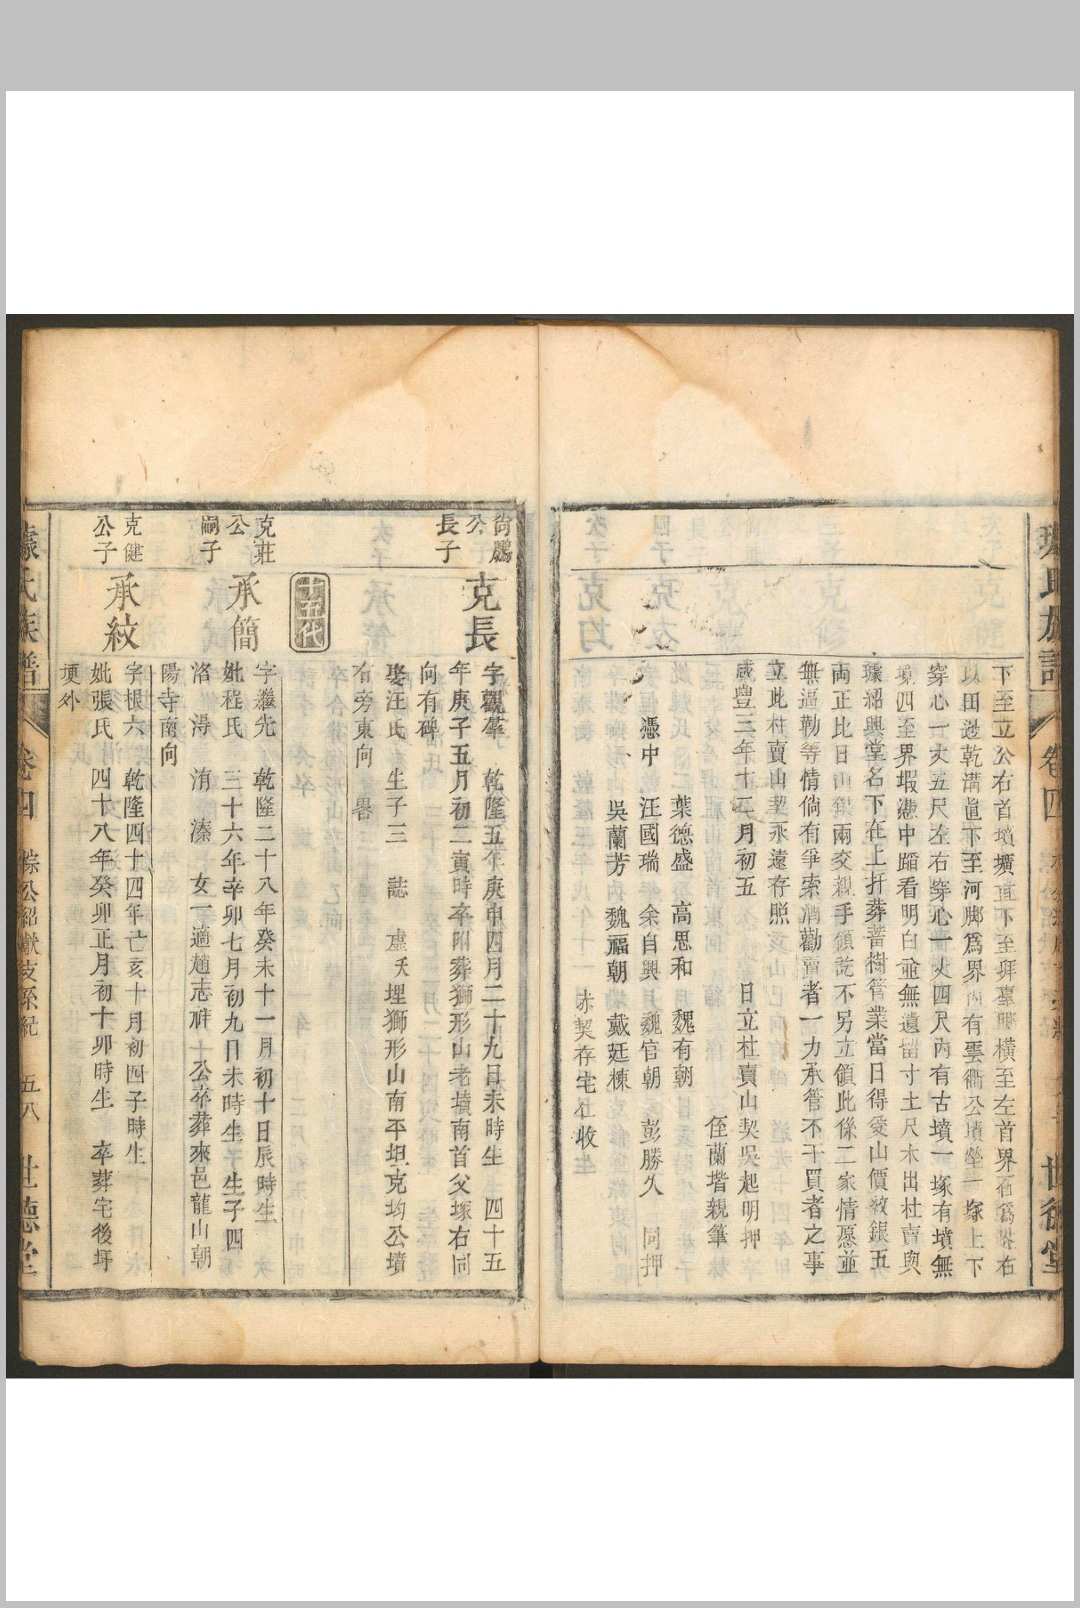 氏族譜
卷四
世德堂
下至立公右首墳壙直下至拜臺脚橫至左首界石為界右
以田邊乾溝直下至河脚為界內有雲衢公墳塋一塚上下
穿心一丈五尺左右穿心一丈四尺內有古墳一塚有墳無
境四至界瑕憑中踏看明白並無遺留寸土尺木出杜賣與
璩紹興堂名下在上扦葬蓄樹管業當日得受山價紋銀五
兩正比日山銀兩交親手領訖不另立領此係二家情愿並
無逼勒等情倘有爭索消勸賣者一力承管不干買者之事
立此杜賣山契永遠存照
咸豐三年十二月初五 日立杜賣山契吳起明押
侄蘭堦親筆
葉德盛 高思和 魏有朝
憑中 汪國瑞 余自興 魏官朝 彭勝久 同押
吳蘭芳 魏福朝 戴廷棟
赤契存宅仕收
尚鵬
公
長子
克長
字觀羣 乾隆五年庚申四月二十九日未時生 四十五
年庚子五月初二寅時卒附葬獅形山老墳南首父塚右同
向有碑
娶汪氏 生子三 誌 虞 殀 埋獅形山南平坦克均公墳
右旁東向 畧
十五代
克莊
公
嗣子
承簡
字繼先 乾隆二十八年癸未十一月初十日辰時生
妣程氏 三十六年辛卯七月初九日未時生子生子四
洛 潯 洧 溱 女一適趙志祥十公卒葬來邑龍山朝
陽寺南向
克健
公子
承紋
字根六 乾隆四十四年亡亥十月初四子時生
妣張氏 四十八年癸卯正月初十卯時生 卒葬宅後圩
埂外
璩氏族譜
卷四
綜公紹獻支系紀
五八
世德堂